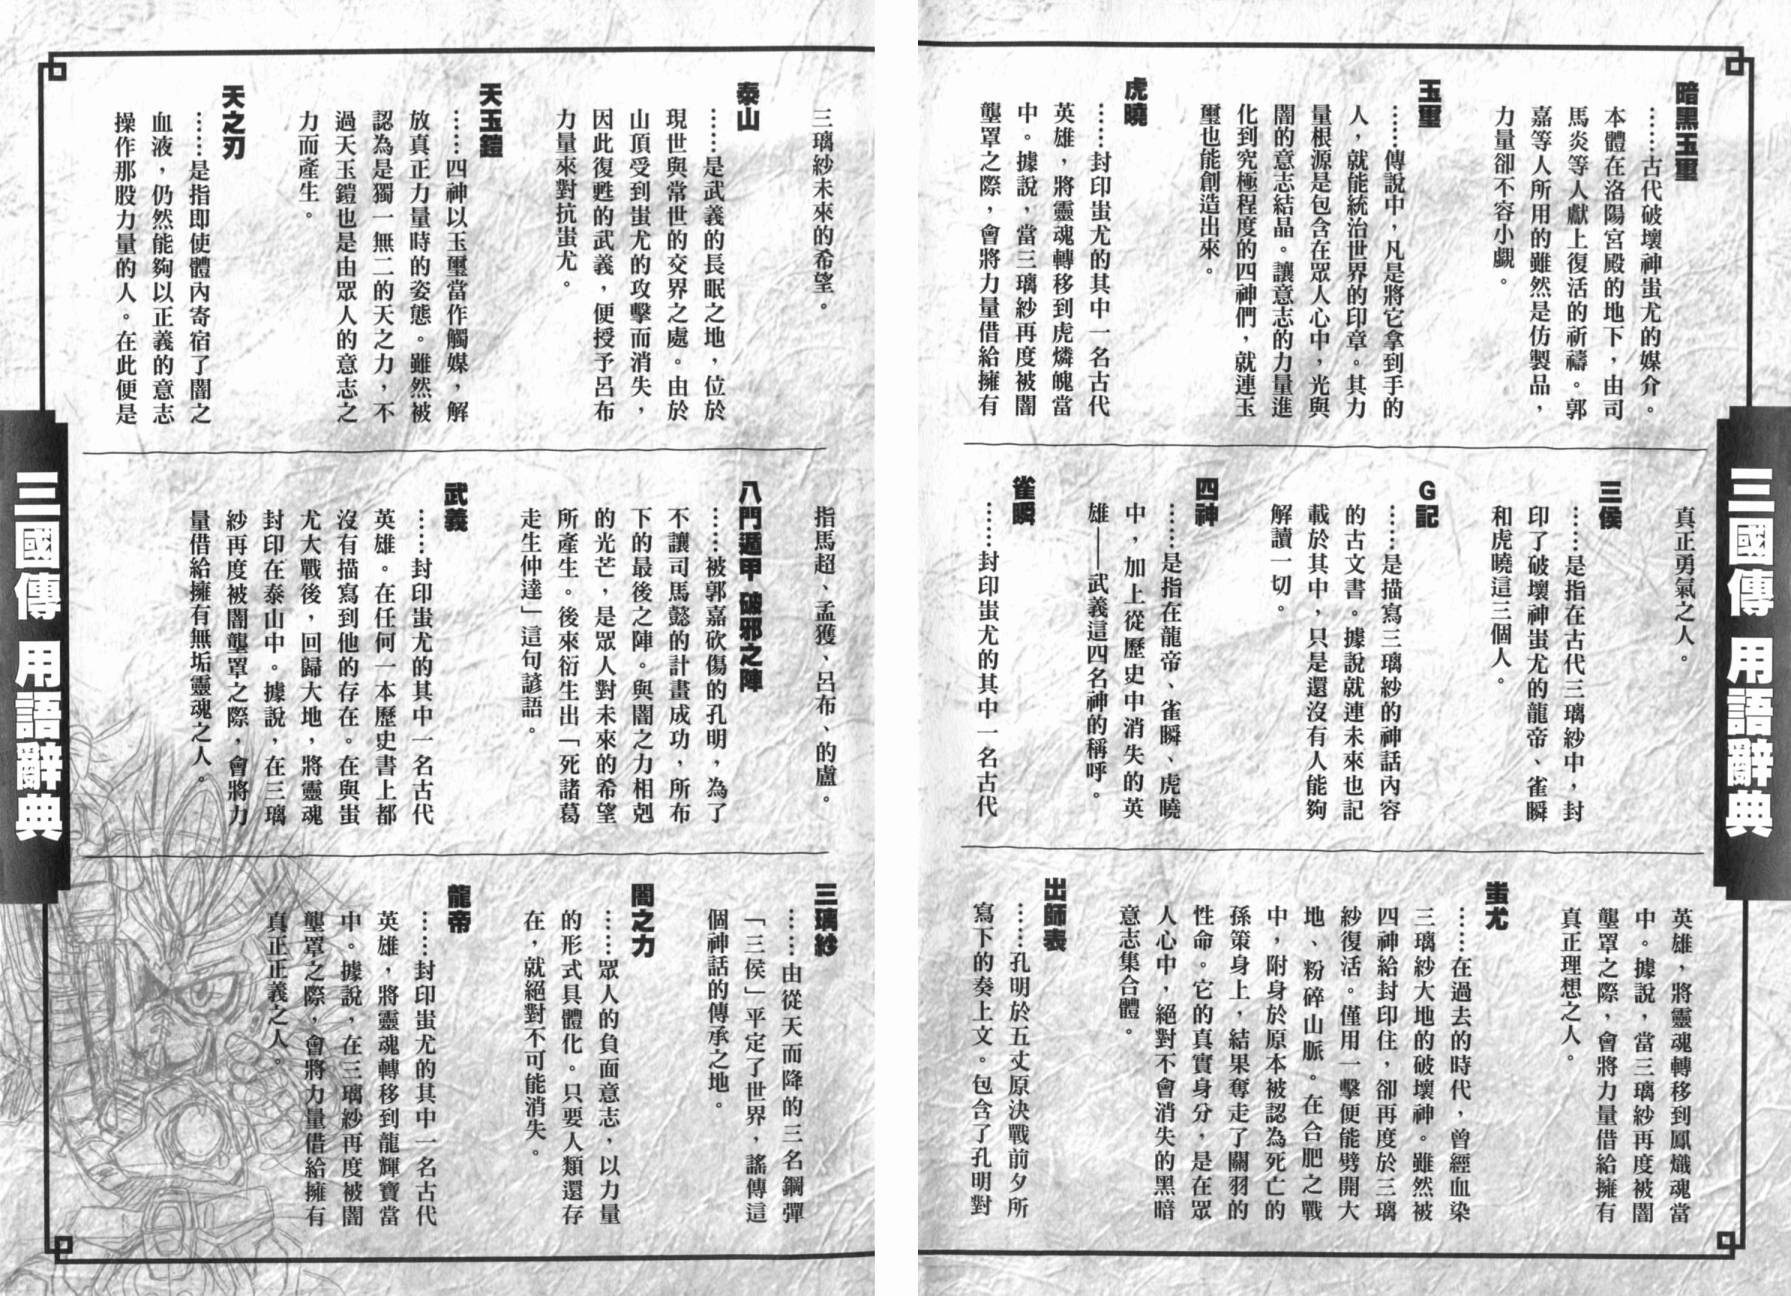 三國傳 用語辭典
暗黑玉璽
……古代破壞神蚩尤的媒介。
本體在洛陽宮殿的地下，由司
馬炎等人獻上復活的祈禱。郭
嘉等人所用的雖然是仿製品，
力量卻不容小覷。
玉璽
……傳說中，凡是將它拿到手的
人，就能統治世界的印章。其力
量根源是包含在眾人心中，光與
闇的意志結晶。讓意志的力量進
化到究極程度的四神們，就連玉
璽也能創造出來。
虎曉
……封印蚩尤的其中一名古代
英雄，將靈魂轉移到虎燐魄當
中。據說，當三璃紗再度被闇
壟罩之際，會將力量借給擁有
真正勇氣之人。
三侯
……是指在古代三璃紗中，封
印了破壞神蚩尤的龍帝、雀瞬
和虎曉這三個人。
G記
……是描寫三璃紗的神話內容
的古文書。據說就連未來也記
載於其中，只是還沒有人能夠
解讀一切。
四神
……是指在龍帝、雀瞬、虎曉
中，加上從歷史中消失的英
雄——武義這四名神的稱呼。
雀瞬
……封印蚩尤的其中一名古代
英雄，將靈魂轉移到鳳熾魂當
中。據說，當三璃紗再度被闇
壟罩之際，會將力量借給擁有
真正理想之人。
蚩尤
……在過去的時代，曾經血染
三璃紗大地的破壞神。雖然被
四神給封印住，卻再度於三璃
紗復活。僅用一擊便能劈開大
地、粉碎山脈。在合肥之戰
中，附身於原本被認為死亡的
孫策身上，結果奪走了關羽的
性命。它的真實身分，是在眾
人心中，絕對不會消失的黑暗
意志集合體。
出師表
……孔明於五丈原決戰前夕所
寫下的奏上文。包含了孔明對
三璃紗未來的希望。
泰山
……是武義的長眠之地，位於
現世與常世的交界之處。由於
山頂受到蚩尤的攻擊而消失，
因此復甦的武義，便授予呂布
力量來對抗蚩尤。
天玉鎧
……四神以玉璽當作觸媒，解
放真正力量時的姿態。雖然被
認為是獨一無二的天之力，不
過天玉鎧也是由眾人的意志之
力而產生。
天之刃
……是指即使體內寄宿了闇之
血液，仍然能夠以正義的意志
操作那股力量的人。在此便是
指馬超、孟獲、呂布、的盧。
八門遁甲 破邪之陣
……被郭嘉砍傷的孔明，為了
不讓司馬懿的計畫成功，所布
下的最後之陣。與闇之力相剋
的光芒，是眾人對未來的希望
所產生。後來衍生出「死諸葛
走生仲達」這句諺語。
武義
……封印蚩尤的其中一名古代
英雄。在任何一本歷史書上都
沒有描寫到他的存在。在與蚩
尤大戰後，回歸大地，將靈魂
封印在泰山中。據說，在三璃
紗再度被闇壟罩之際，會將力
量借給擁有無垢靈魂之人。
三璃紗
……由從天而降的三名鋼彈
「三侯」平定了世界，謠傳這
個神話的傳承之地。
闇之力
……眾人的負面意志，以力量
的形式具體化。只要人類還存
在，就絕對不可能消失。
龍帝
……封印蚩尤的其中一名古代
英雄，將靈魂轉移到龍輝寶當
中。據說，在三璃紗再度被闇
壟罩之際，會將力量借給擁有
真正正義之人。
三國傳 用語辭典